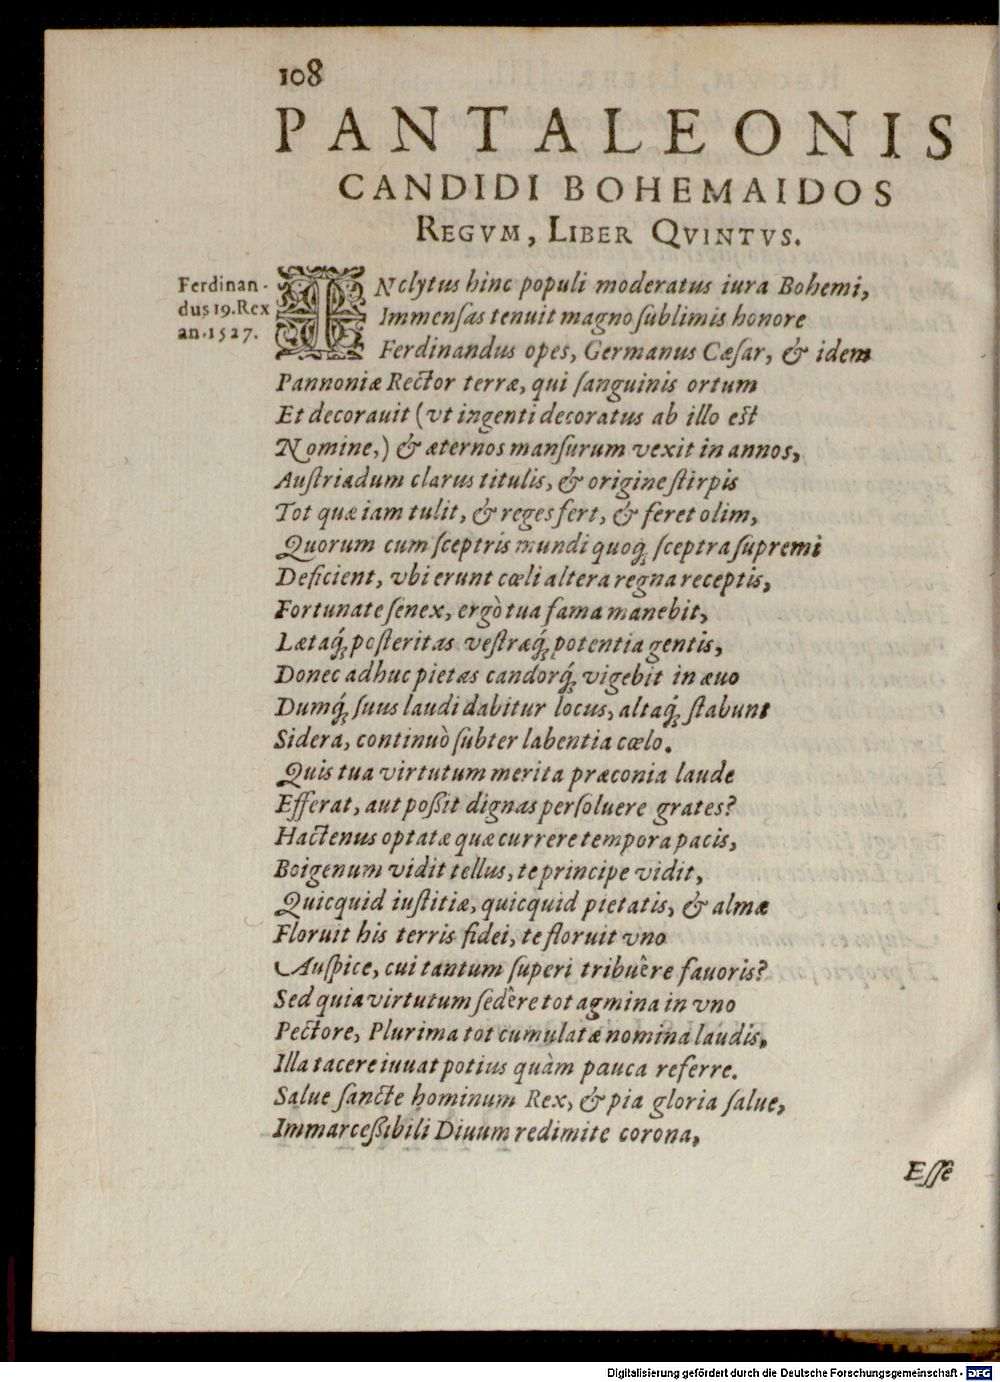 108
PANTALEONIS
CANDIDI BOHEMAIDOS
REGVM, LIBER QVINTVS.
Ferdinan-
dus 19. Rex
an. 1527.
INclytus hinc populi moderatus iura Bohemi,
Immenſas tenuit magno ſublimis honore
Ferdinandus opes, Germanus Cæſar, & idem
Pannoniæ Rector terræ, qui ſanguinis ortum
Et decorauit (vt ingenti decoratus ab illo est
Nomine,) & æternos manſurum vexit in annos,
Auſtriadum clarus titulis, & origine ſtirpis
Tot quæ iam tulit, & reges fert, & feret olim,
Quorum cum ſceptris mundi quoq; ſceptra ſupremi
Deficient, vbi erunt cœli altera regna receptis,
Fortunate ſenex, ergò tua fama manebit,
Lætaq́; poſteritas veſtræq́; potentia gentis,
Donec adhuc pietas candorq́; vigebit in æuo
Dumq́; ſuus laudi dabitur locus, altaq́; ſtabunt
Sidera, continuò ſubter labentia cœlo.
Quis tua virtutum merita præconia laude
Efferat, aut poßit dignas perſoluere grates?
Hactenus optatæ quæ currere tempora pacis,
Boigenum vidit tellus, te principe vidit,
Quicquid iuſtitiæ, quicquid pietatis, & almæ
Floruit his terris fidei, te floruit vno
Auſpice, cui tantum ſuperi tribuêre fauoris?
Sed quia virtutum ſedêre tot agmina in vno
Pectore, Plurima tot cumulatæ nomina laudis,
Illa tacere iuuat potius quàm pauca referre.
Salue ſancte hominum Rex, & pia gloria ſalue,
Immarceßibili Diuum redimite corona,
Eſſe
Digitalisierung gefördert durch die Deutsche Forschungsgemeinschaft - DFG